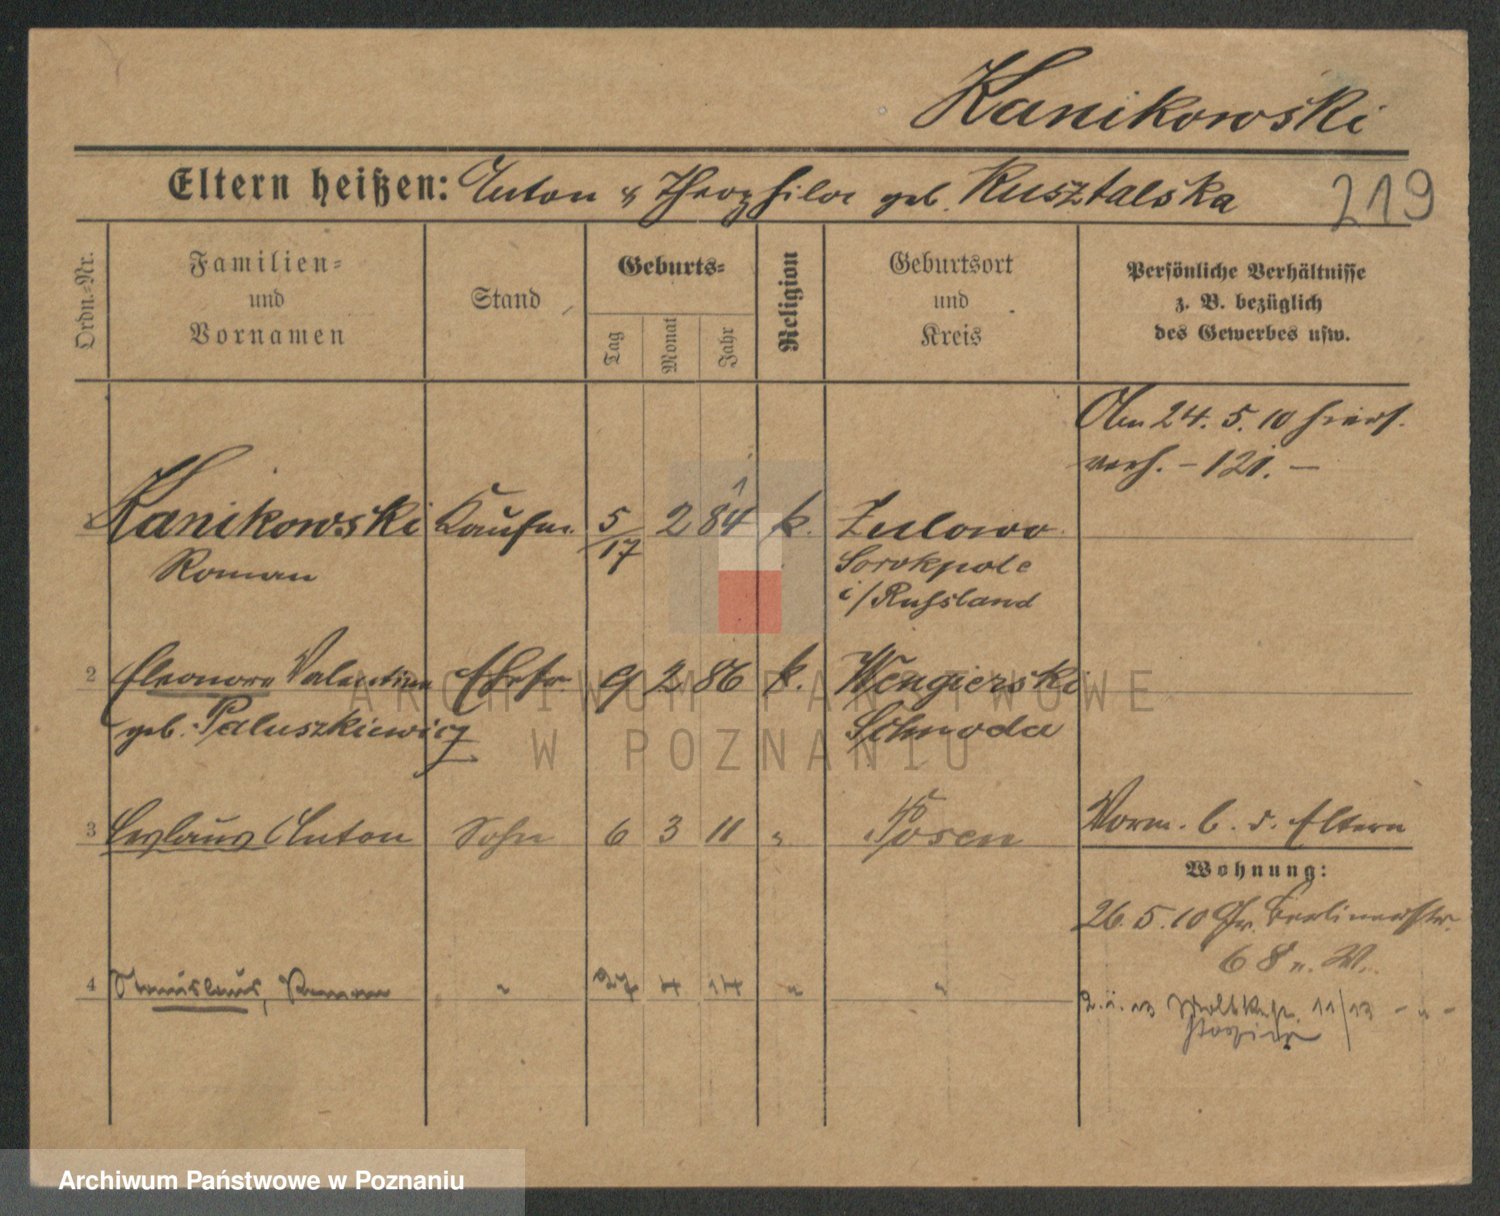 Kanikowski
Eltern heißen: Anton & Theophila geb. Kusztalska
219
Ordn.=Nr.
Familien=
und
Vornamen
Stand
Geburts=
Tag
Monat
Jahr
Religion
Geburtsort
und
Kreis
Persönliche Verhältnisse
z. B. bezüglich
des Gewerbes usw.
Am 24. 5. 10 hiers.
verh. – 121. –
Kanikowski Kaufm. 5/17 2 84 k. Zulowo
Roman
Sorokpole
i/Russland
2 Eleonora Valentina Ehefr. 9 2 86 k. Wengierski
geb. Paluszkiewicz Schroda
3 Ceslaus Anton Sohn 6 3 11 " Posen
Vorm. b. d. Eltern
Wohnung:
26. 5. 10 Gr. Berlinerstr.
68 n. W.
4 Stanislaus, Roman " 27 4 14 " "
11/13 – " –
ARCHIWUM PAŃSTWOWE
W POZNANIU
Archiwum Państwowe w Poznaniu